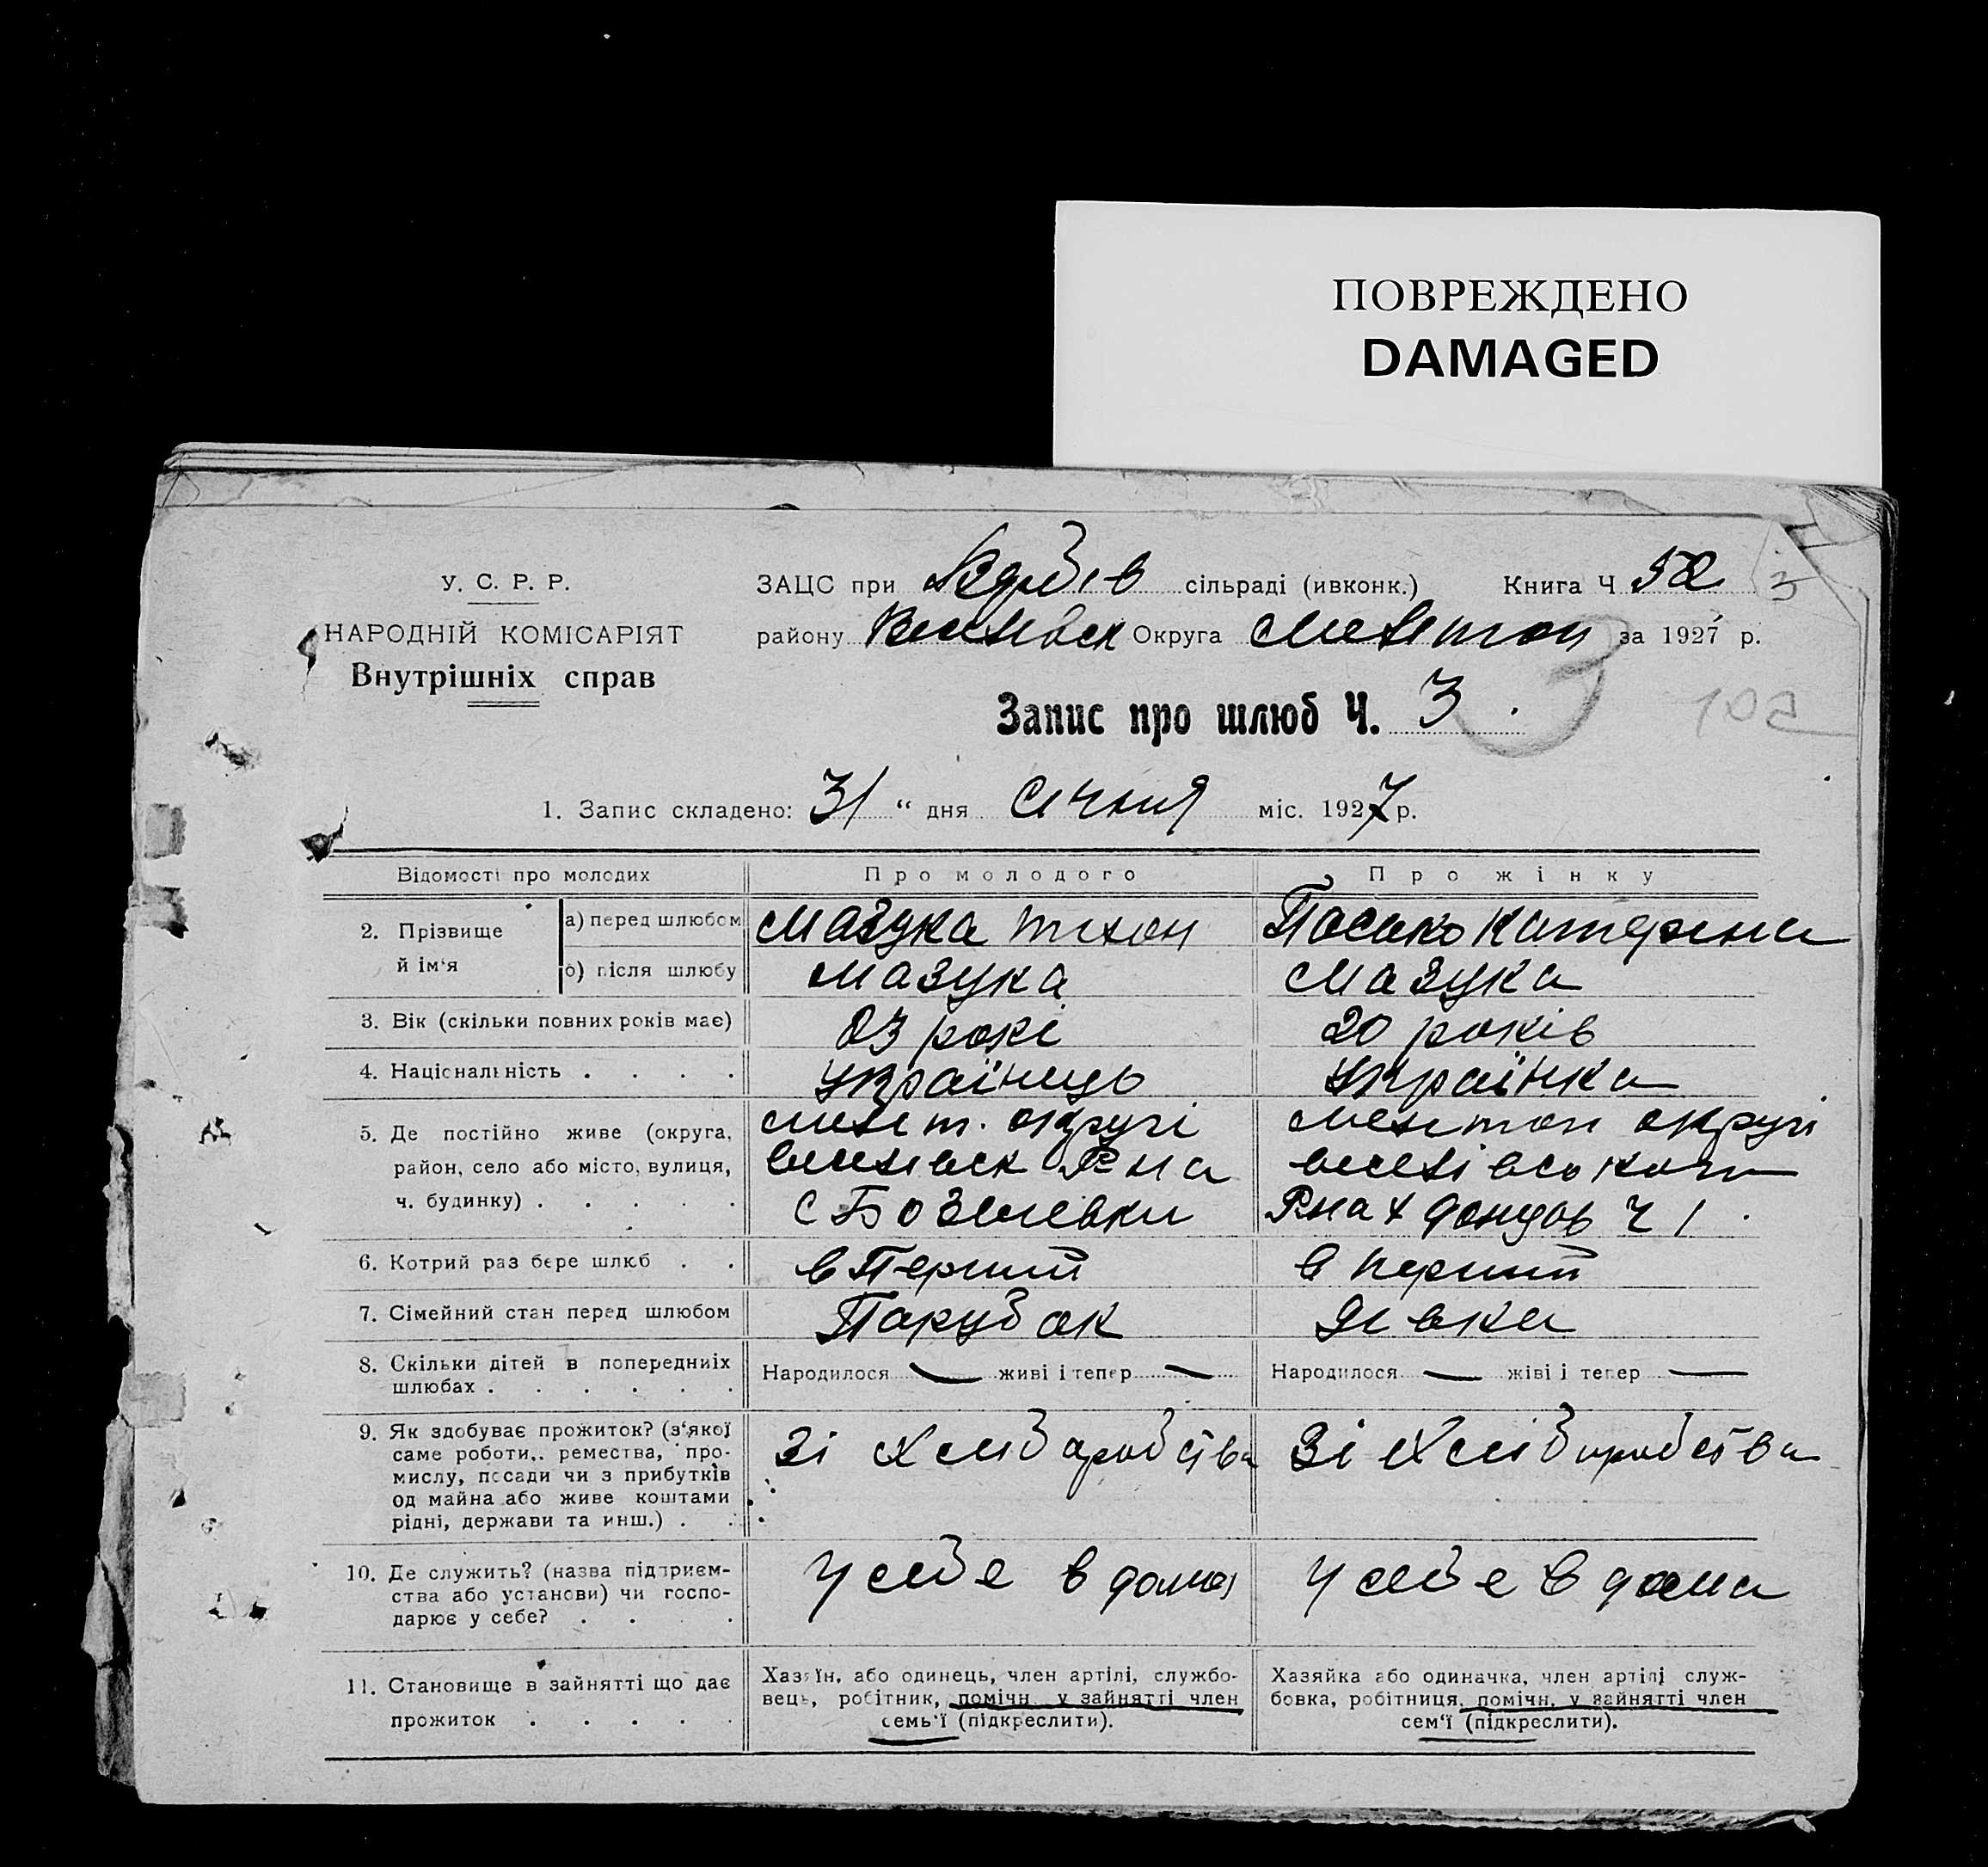 ПОВРЕЖДЕНО
DAMAGED
У. С. Р. Р.
НАРОДНІЙ КОМІСАРІЯТ
Внутрішніх справ
ЗАЦС при сільраді (ивконк.) Книга Ч
району Округа за 1927 р.
Запис про шлюб Ч. 3
102
1. Запис складено: 31 “ дня січня міс. 1927 р.
Відомості про молодих Про молодого Про жінку
2. Прізвище й ім‘я
а) перед шлюбом Мазука Тихон Посико Катерина
б) після шлюбу Мазука Мазука
3. Вік (скільки повних років має) 23 рокі 20 років
4. Національність . . . . Українець Українка
5. Де постійно живе (округа, район, село або місто, вулиця, ч. будинку) . . . . .
округі
Рна
с
округі
Рна х Ч 1
6. Котрий раз бере шлюб . . в Перший в перший
7. Сімейний стан перед шлюбом Парубок Дівка
8. Скільки дітей в попередниіх шлюбах . . . . . .
Народилося — живі і тепер —
Народилося — жіві і тепер —
9. Як здобуває прожиток? (з‘якої саме роботи,. ремества, про-
мислу, посади чи з прибутків
од майна або живе коштами
рідні, держави та инш.) . .
Зі хліборобства
Зі хліборобства
10. Де служить? (назва підприєм-
ства або установи) чи госпо-
дарює у себе? . . . .
У себе в дома
У себе в дома
11. Становище в зайнятті що дає
прожиток . . . . .
Хазяїн, або одинець, член артілі, службо-
вець, робітник, помічн. у зайнятті член
семь‘ї (підкреслити).
Хазяйка або одиначка, член артілі служ-
бовка, робітниця, помічн. у зайнятті член
сем‘ї (підкреслити).